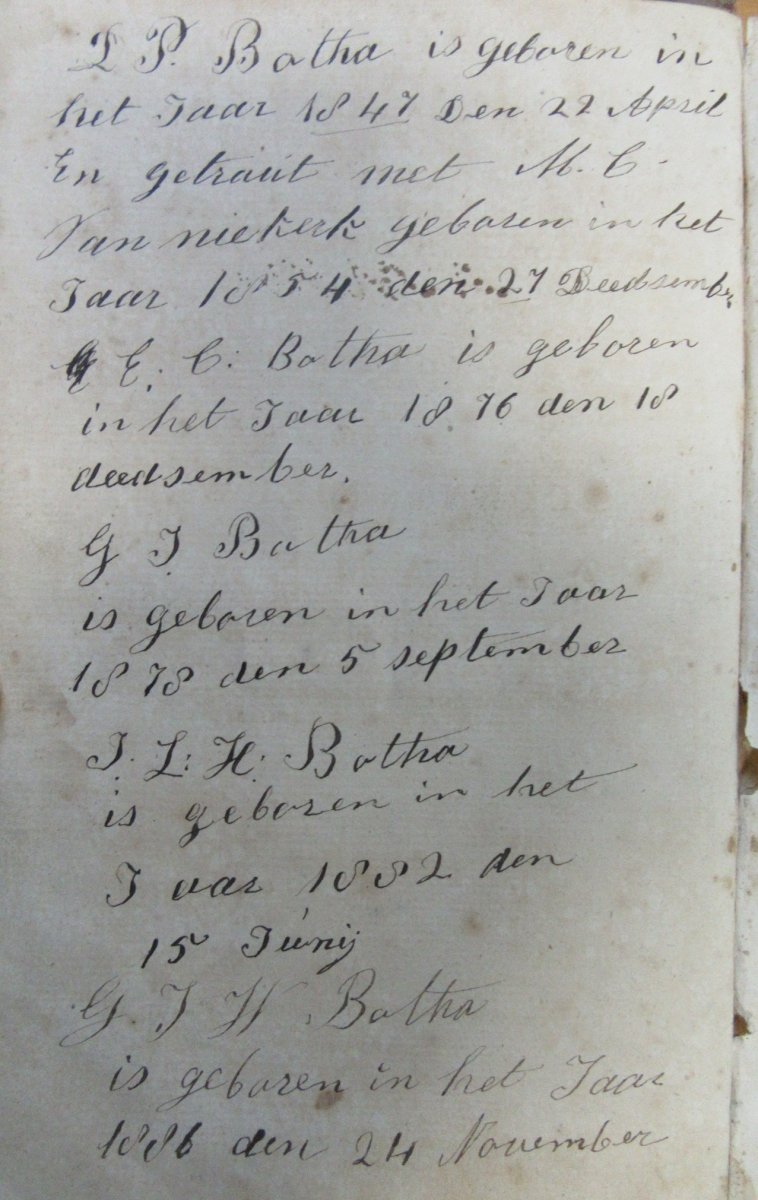 L P. Botha is geboren in
het Jaar 1847 Den 22 April
En getraut met M. C.
Van niekerk geboren in het
Jaar 1854 den 27 Deedsember
E. C. Botha is geboren
in het Jaar 1876 den 18
deedsember.
G J Botha
is geboren in het Jaar
1878 den 5 september
J. L: H: Botha
is geboren in het
Jaar 1882 den
15 Junij
G. J H Botha
is geboren in het Jaar
1886 den 24 November